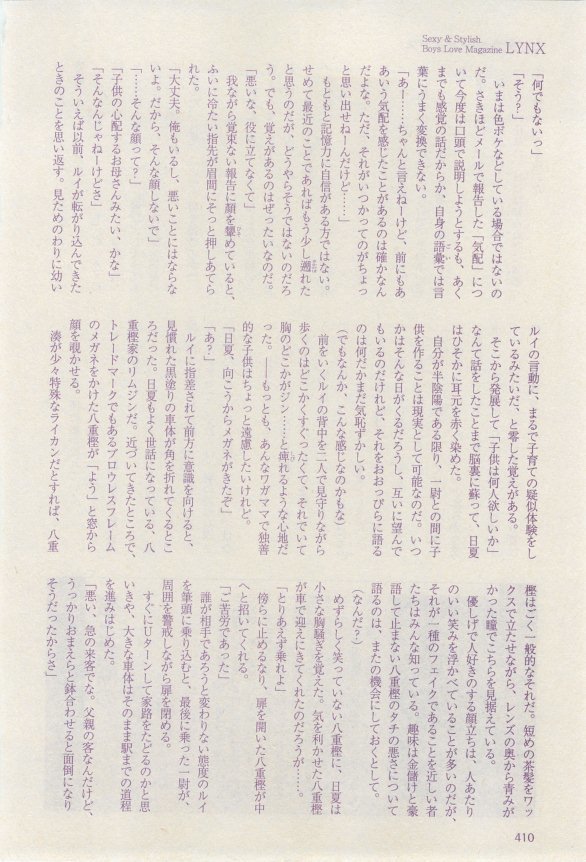 Sexy & Stylish
Boys Love Magazine LYNX
「何でもないっ」
「そう？」
いまは色ボケなどしている場合ではないの
だ。さきほどメールで報告した「気配」につ
いて今度は口頭で説明しようとするも、あく
までも感覚の話だからか、自身の語彙では言
葉にうまく変換できない。
「あー……ちゃんと言えねーけど、前にもあ
あいう気配を感じたことがあるのは確かなん
だよな。ただ、それがいつかってのがちょっ
と思い出せねーんだけど……」
もともと記憶力に自信がある方ではない。
せめて最近のことであればもう少し遡れた
と思うのだが、どうやらそうではないのだろ
う。でも、覚えがあるのはぜったいなのだ。
「悪いな、役に立てなくて」
我ながら覚束ない報告に顔を顰めていると、
ふいに冷たい指先が眉間にそっと押しあてら
れた。
「大丈夫。俺もいるし、悪いことにはならな
いよ。だから、そんな顔しないで」
「……そんな顔って？」
「子供の心配するお母さんみたい、かな」
「そんなんじゃねーけどさ」
そういえば以前、ルイが転がり込んできた
ときのことを思い返す。見ためのわりに幼い
ルイの言動に、まるで子育ての疑似体験をし
ているみたいだ、と零した覚えがある。
そこから発展して「子供は何人欲しいか」
なんて話をしたことまで脳裏に蘇って、日夏
はひそかに耳元を赤く染めた。
自分が半陰陽である限り、一尉との間に子
供を作ることは現実として可能なのだ。いつ
かはそんな日がくるだろうし、互いに望んで
もいるのだけれど、それをおおっぴらに語る
のは何だかまだ気恥ずかしい。
（でもなんか、こんな感じなのかもな）
前をいくルイの背中を二人で見守りながら
歩くのはどこかくすぐったくて、それでいて
胸のどこかがジン……と痺れるような心地だ
った。――もっとも、あんなワガママで独善
的な子供はちょっと遠慮したいけれど。
「日夏、向こうからメガネがきたぞ」
「あ？」
ルイに指差されて前方に意識を向けると、
見慣れた黒塗りの車体が角を折れてくるとこ
ろだった。日夏もよく世話になっている、八
重樫家のリムジンだ。近づいてきたところで、
トレードマークでもあるブロウレスフレーム
のメガネをかけた八重樫が「よう」と窓から
顔を覗かせる。
湊が少々特殊なライカンだとすれば、八重
樫はごく一般的なそれだ。短めの茶髪をワッ
クスで立たせながら、レンズの奥から青みが
かった瞳でこちらを見据えている。
優しげで人好きのする顔立ちは、人あたり
のいい笑みを浮かべていることが多いのだが、
それが一種のフェイクであることを近しい者
たちはみんな知っている。趣味は金儲けと豪
語して止まない八重樫のタチの悪さについて
語るのは、またの機会にしておくとして。
（なんだ？）
めずらしく笑っていない八重樫に、日夏は
小さな胸騒ぎを覚えた。気を利かせた八重樫
が車で迎えにきてくれたのだろうが……。
「とりあえず乗れよ」
傍らに止めるなり、扉を開いた八重樫が中
へと招いてくれる。
「ご苦労であった」
誰が相手であろうと変わりない態度のルイ
を筆頭に乗り込むと、最後に乗った一尉が、
周囲を警戒しながら扉を閉める。
すぐにUターンして家路をたどるのかと思
いきや、大きな車体はそのまま駅までの道程
を進みはじめた。
「悪い、急の来客でな。父親の客なんだけど、
うっかりおまえらと鉢合わせると面倒になり
そうだったからさ」
410